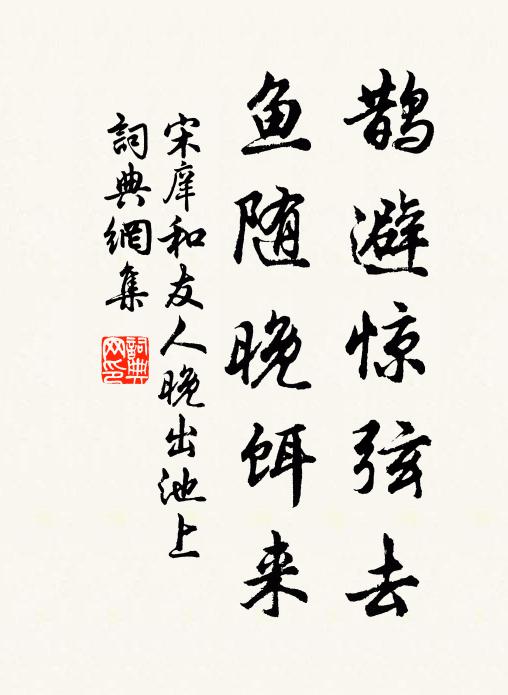 鹊避惊弦去
鱼随晚饵来
宋庠和友人晚出池上
詞典網集
詞典
网印